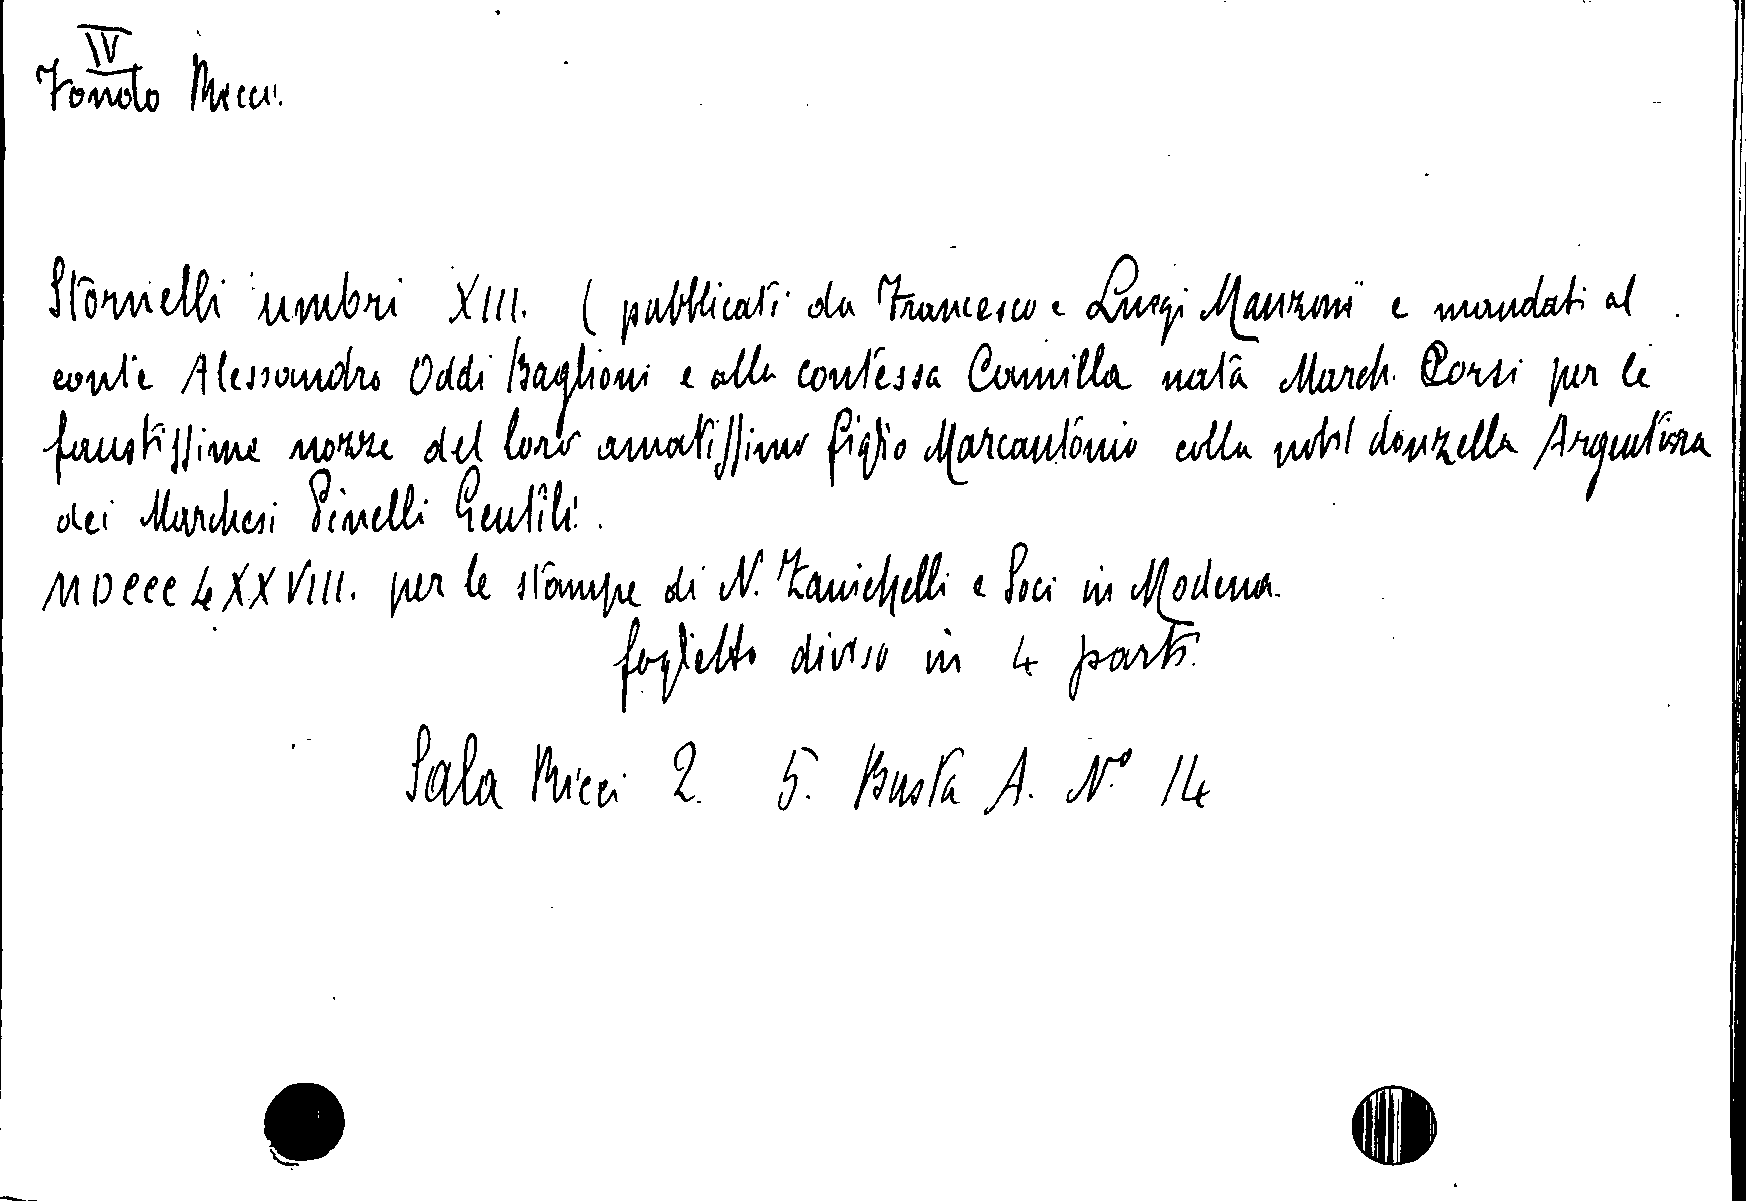 IV
Fondo Ricci.
Stornelli umbri XIII. ( pubblicati da Francesco e Luigi Manzoni e mandati al
conte Alessandro Oddi Baglioni e alla contessa Camilla nata March. Corsi per le
faustissime nozze del loro amatissimo figlio Marcantonio colla nobil donzella Argentina
dei Marchesi Pinelli Gentili.
MDCCCLXXVIII. per le stampe di N. Zanichelli e Soci in Modena.
foglietto diviso in 4 parti.
Sala Ricci 2. 5. Busta A. N.° 14